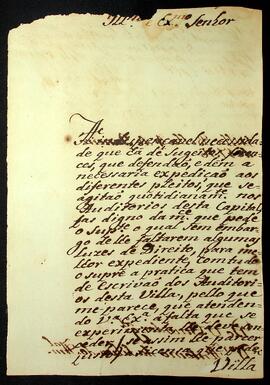 Illmo. e Exmo. Senhor
He indispençavel necessidade
de que ha de Sugeitos
ces, que defendão, e dem a
necessaria expedição aos
diferentes pleitos, que se
agitão quotidianamte. nos
Auditorios desta Capital,
faz digno da m.
o Suppe. o qual sem embar
go de lhe faltarem algumas
luzes de Direito, para me
lhor expediente, com tudo
o supre a pratica que tem
de Escrivão dos Auditori
os desta Villa, pello que
me parece, que atenden
do Va. Exa. a falta que se
experimenta, deve con
ceder, se assim lhe parecer
Villa